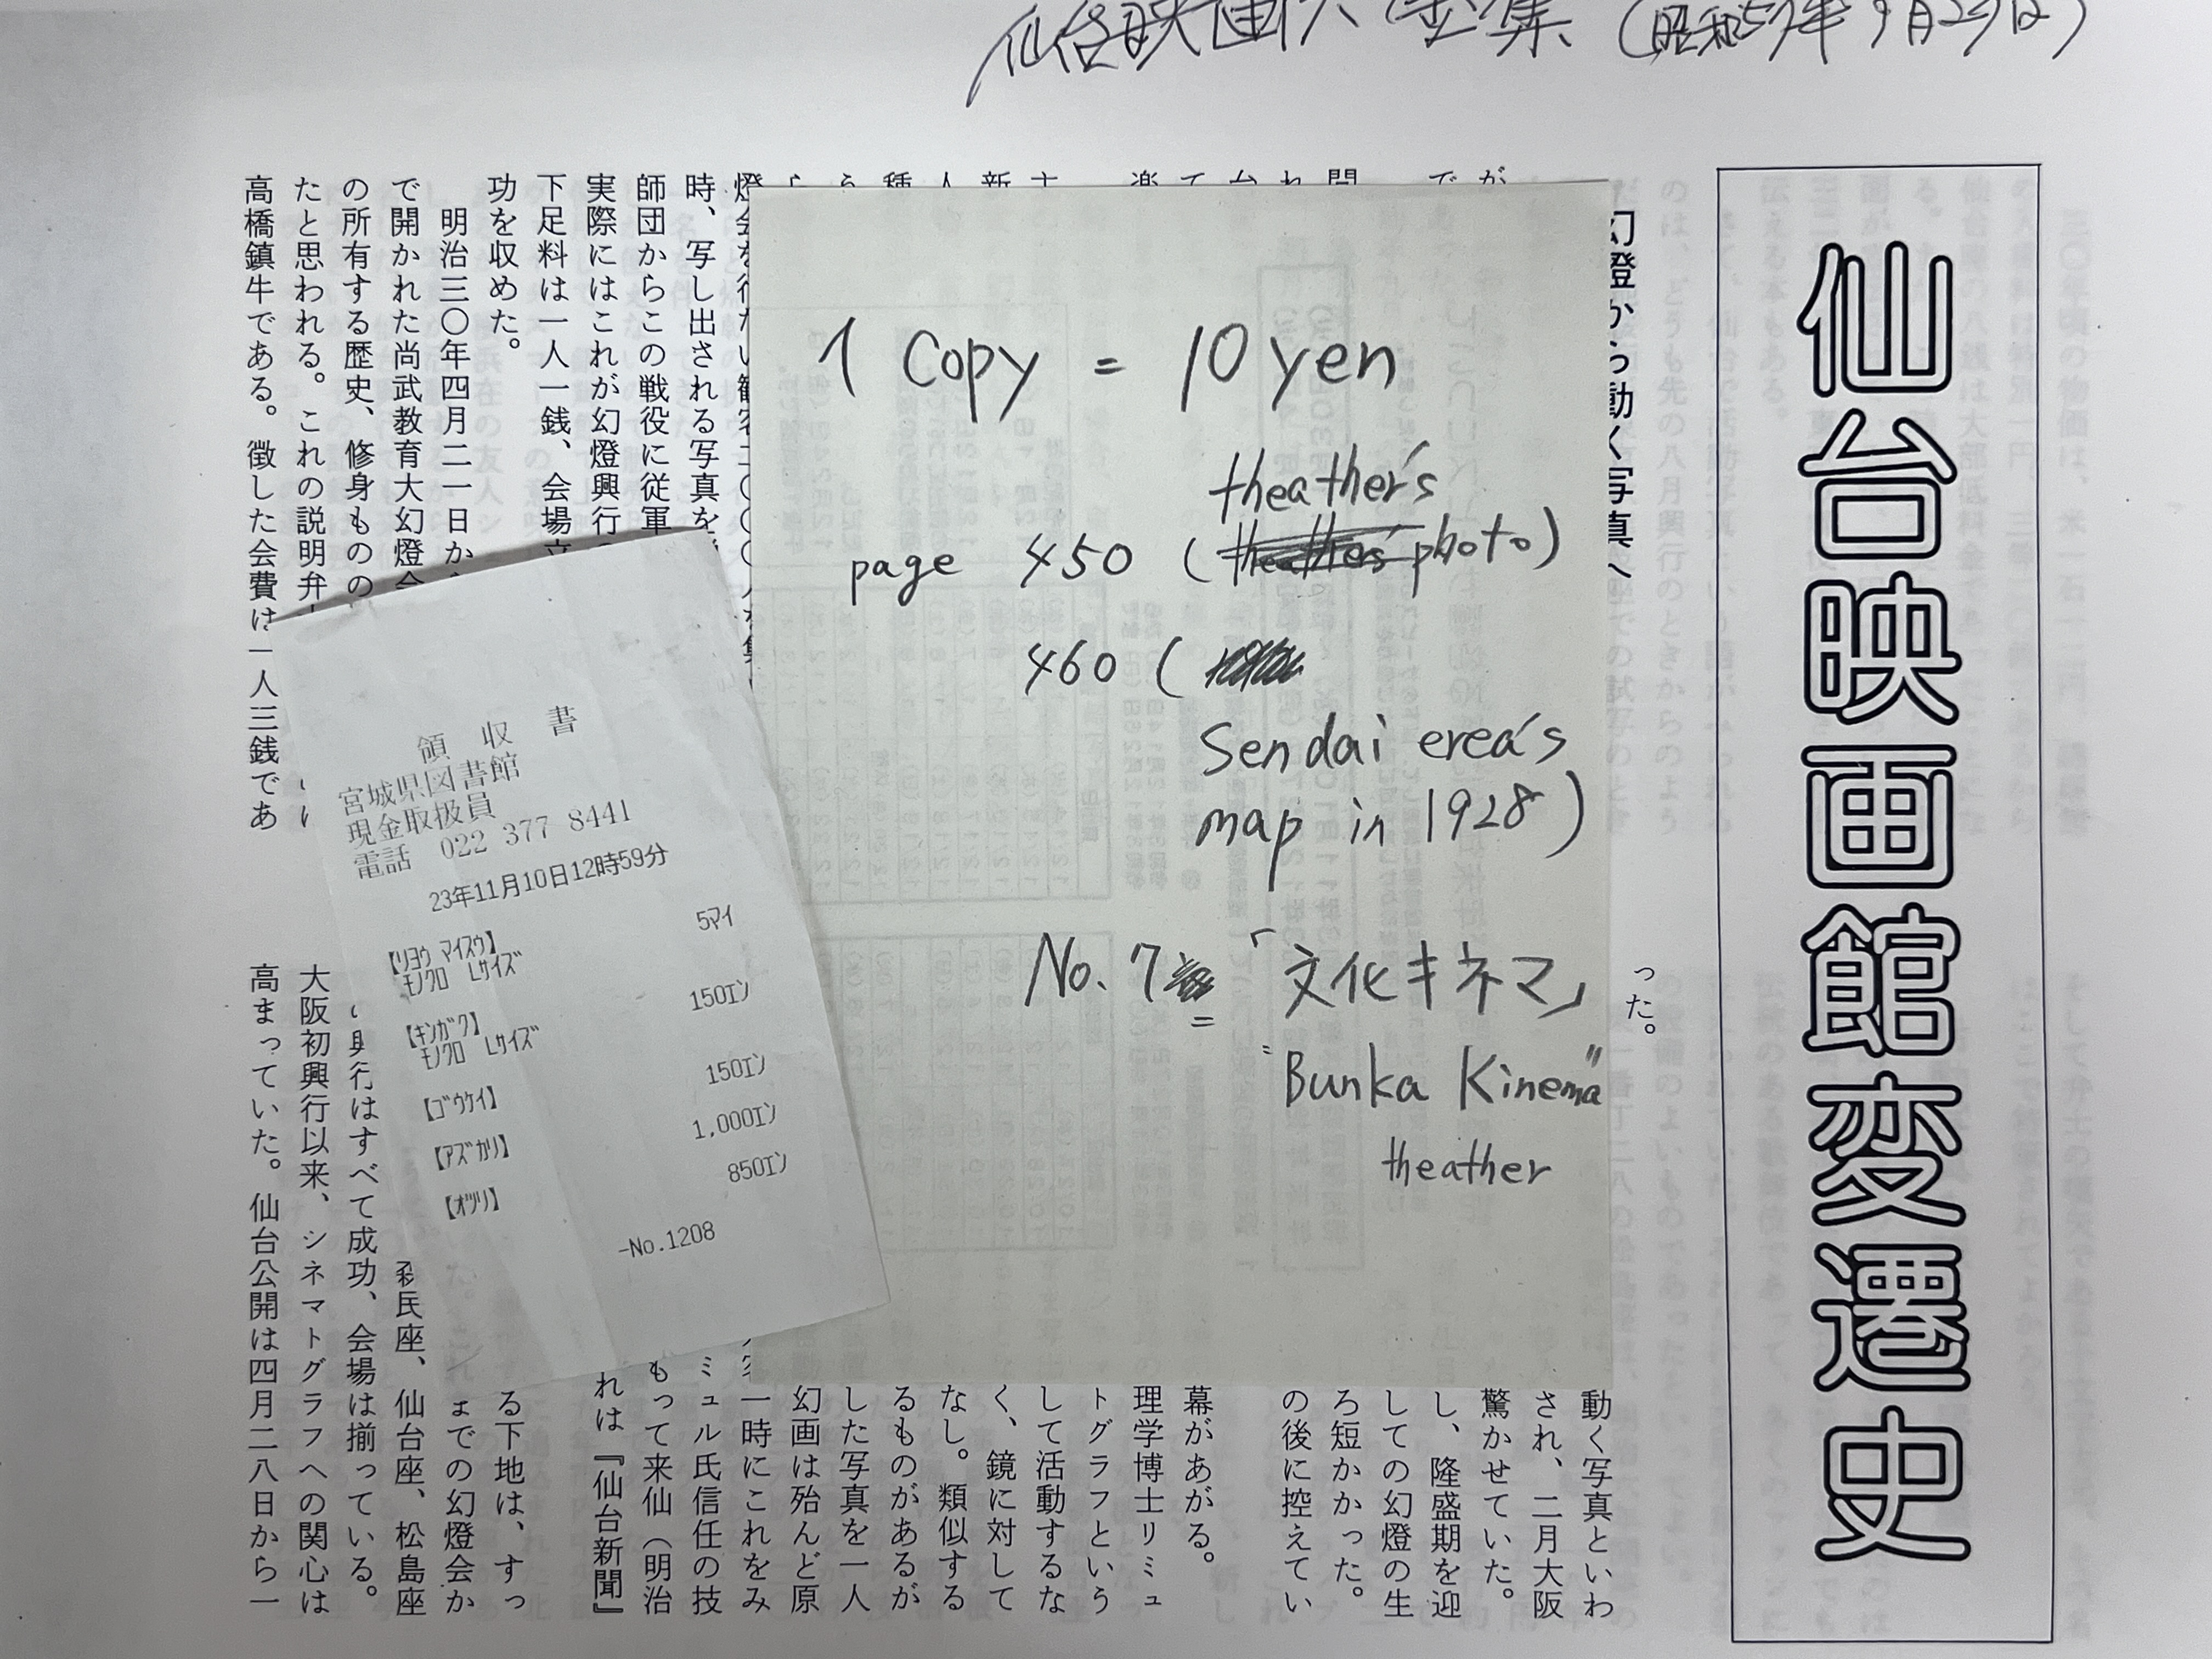 仙台映画大全集（昭和57年9月29日）
仙台映画館変遷史
幻燈から動く写真へ
った。
動く写真といわ
され、二月大阪
驚かせていた。
し、隆盛期を迎
しての幻燈の生
ろ短かかった。
の後に控えてい
幕があがる。
理学博士リミュ
トグラフという
して活動するな
く、鏡に対して
なし。類似する
るものがあるが
した写真を一人
幻画は殆んど原
一時にこれをみ
ミュル氏信任の技
もって来仙（明治
れは『仙台新聞』
時、写し出される写真を
師団からこの戦役に従軍
実際にはこれが幻燈興行の
下足料は一人一銭、会場立
功を収めた。
明治三〇年四月二一日か
で開かれた尚武教育大幻燈会
の所有する歴史、修身ものの
たと思われる。これの説明弁
高橋鎮牛である。徴した会費は一人三銭であ
る下地は、すっ
までの幻燈会か
民座、仙台座、松島座
興行はすべて成功、会場は揃っている。
大阪初興行以来、シネマトグラフへの関心は
高まっていた。仙台公開は四月二八日から一
1 Copy = 10 yen
theather's
page 450 ( photo)
460 (
Sendai erea's
map in 1928)
No. 7 = 「文化キネマ」
"Bunka Kinema"
theather
領 収 書
宮城県図書館
現金取扱員
電話 022 377 8441
23年11月10日12時59分
【リヨウ マイスウ】
モノクロ Lサイズ 5マイ
【キンガク】
モノクロ Lサイズ 150エン
【ゴウケイ】 150エン
【アズカリ】 1,000エン
【オツリ】 850エン
-No.1208